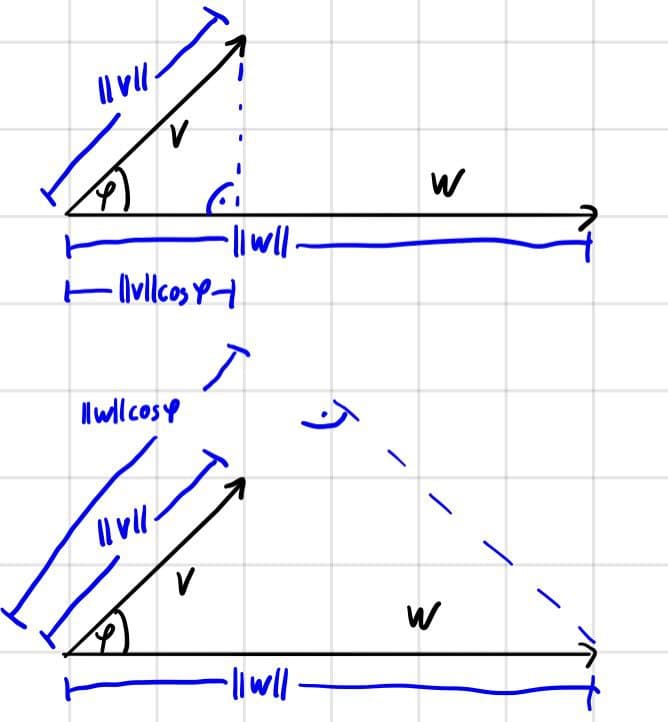 ||v||
v
φ
w
||w||
||v||cos φ
||w||cosφ
||v||
v
φ
w
||w||